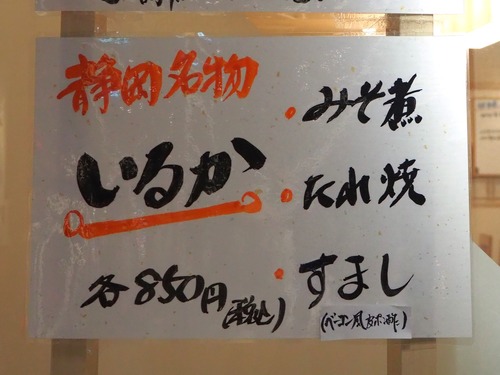 静岡名物
いるか
各850円(税込)
・みそ煮
・たれ焼
・すまし
(ベーコン風 ポン酢)